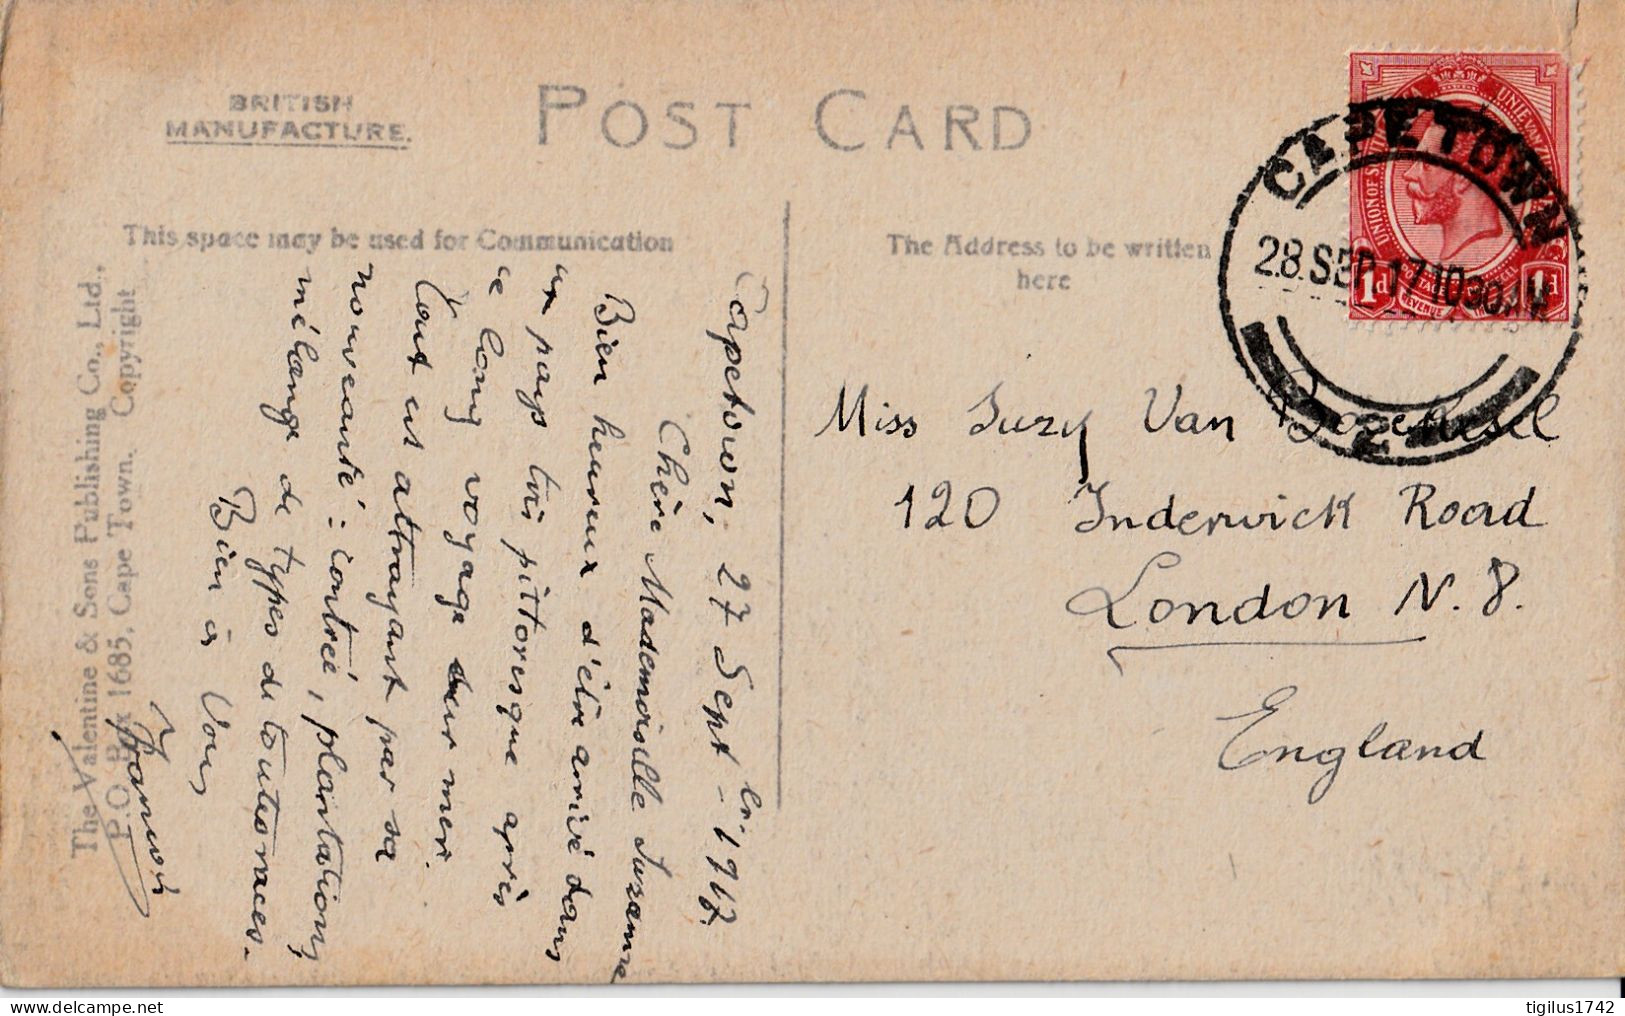 BRITISH
MANUFACTURE.
POST CARD
This space may be used for Communication
The Address to be written
here
The Valentine & Sons Publishing Co., Ltd.,
P.O. Box 1685, Cape Town. Copyright
Capetown, 27 Sept - 1917.
Chère Mademoiselle Suzanne
Bien heureux d'être arrivé dans
un pays très pittoresque après
ce long voyage sur mer.
Tout est attrayant par sa
nouveauté : contrée, plantations,
mélange de types de toutes races.
Bien à Vous
François
Miss Suzy Van
120 Inderwick Road
London N. 8.
England
CAPETOWN
28.SEP.17.1030AM
2
UNION OF
UNIE VAN
1d
POSTAGE
REVENUE
1d
tigilus1742